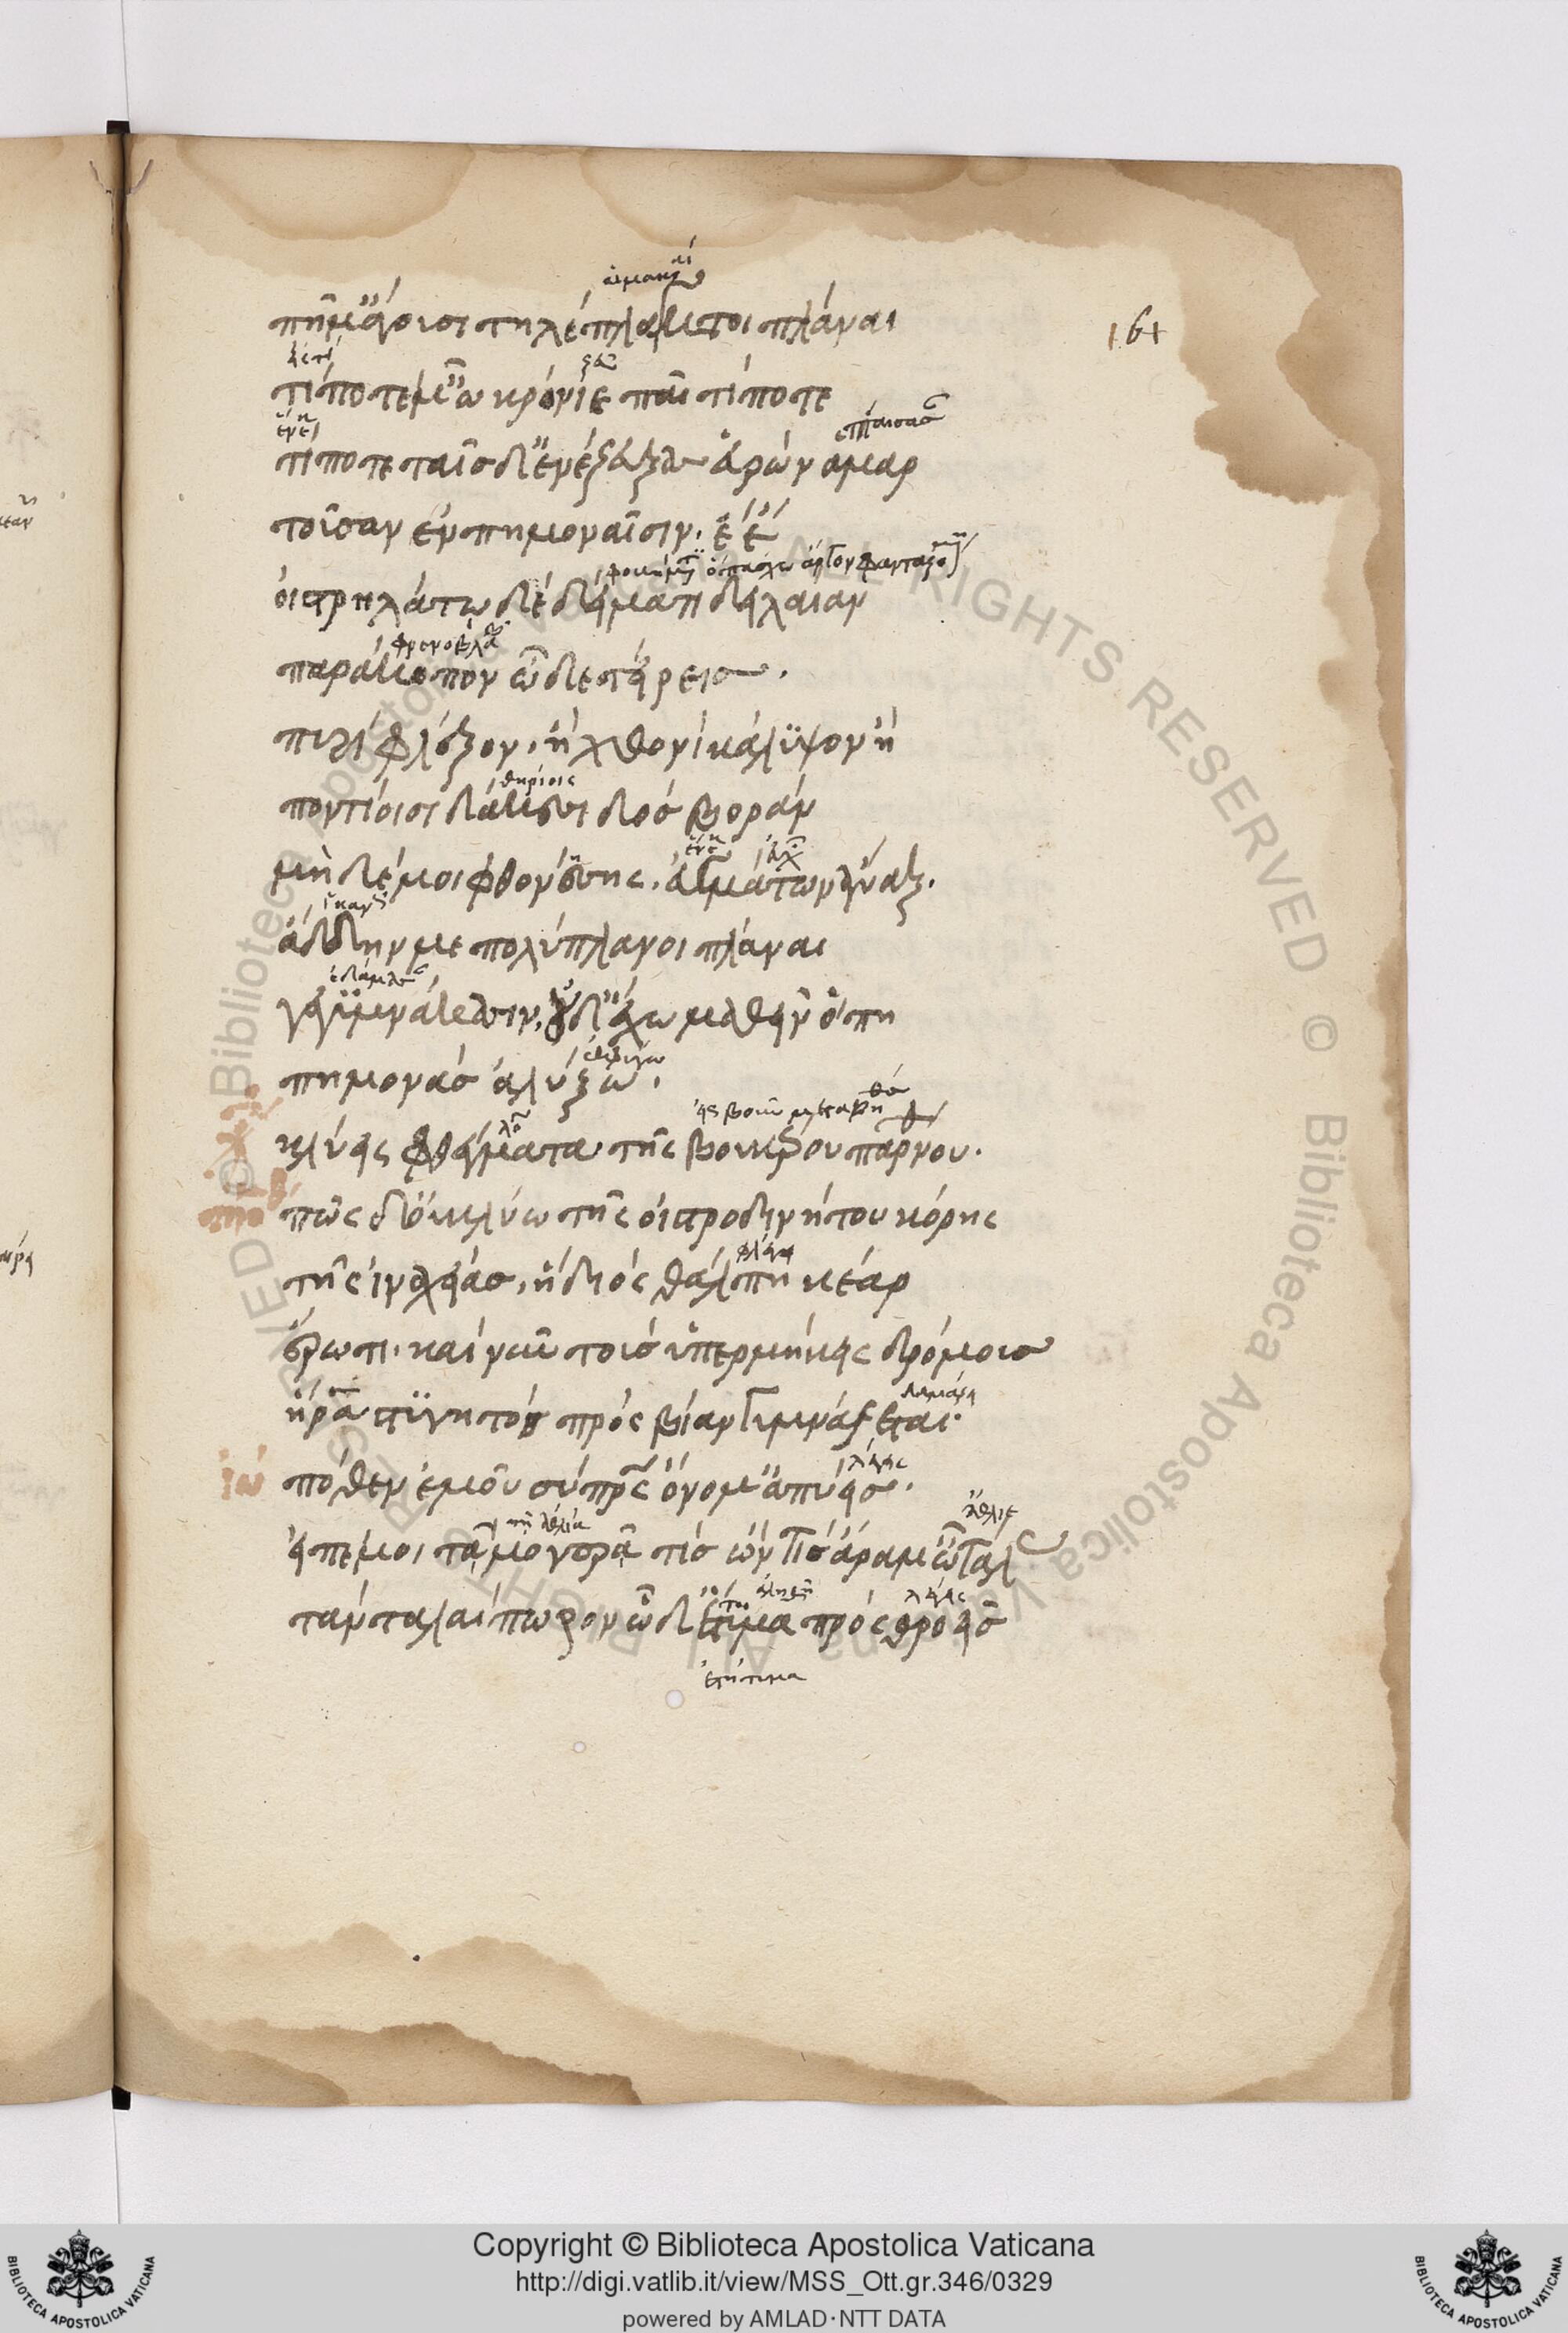 164
πῆ μ' ἄγουσι τηλέπλαγκτοι πλάναι
τί ποτέ μ' ὦ κρόνιε παῖ τί ποτε
τί ποτε ταῖσδ' ἐνέζευξας εὑρὼν ἁμαρ
τοῦσαν ἐν πημοναῖσιν. ἒ ἔ
οἰστρηλάτῳ δὲ δείματι δειλαίαν
παράκοπον ὧδε τείρεις.
πυρὶ φλέξον, ἢ χθονὶ κάλυψον ἢ
θηρίοις
ποντίοισι δάκεσι δὸς βορὰν
μὴ δέ μοι φθονήσῃς. εὐγμάτων ἄναξ.
ἄδδην με πολύπλανοι πλάναι
γεγυμνάκασιν, οὐδ' ἔχω μαθεῖν ὅπη
πημονὰσ ἀλύξω.
κλύεις φθέγματα τῆς βούκερω παρθένου.
πῶς δ' οὐ κλύω τῆς οἰστροδινήτου κόρης
τῆς ἰναχείασ, ἣ διὸς θάλπει κέαρ
ἔρωτι. καὶ νῦν τοὺσ ὑπερμήκεις δρόμουσ
ἥρᾳ στυγητὸσ πρὸς βίαν γυμνάζεται.
ἰὼ πόθεν ἐμοῦ σὺ πρς ὄνομ' ἀπύεισ.
εἰπέ μοι τᾷ μογερᾷ τίσ ὢν τίσ ἄρα μ' ὦ ταλ
τὰν ταλαίπωρον ὧδ' ἔτυμα προσθροεῖσ
ἐτήτυμα
Copyright © Biblioteca Apostolica Vaticana
http://digi.vatlib.it/view/MSS_Ott.gr.346/0329
powered by AMLAD·NTT DATA
BIBLIOTECA APOSTOLICA VATICANA
BIBLIOTECA APOSTOLICA VATICANA